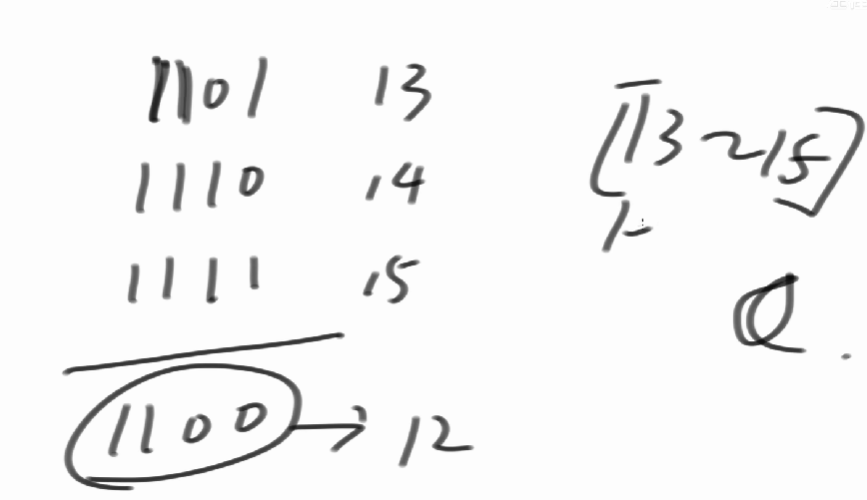 1101 13
1110 14
1111 15
1100 → 12
[13~15]